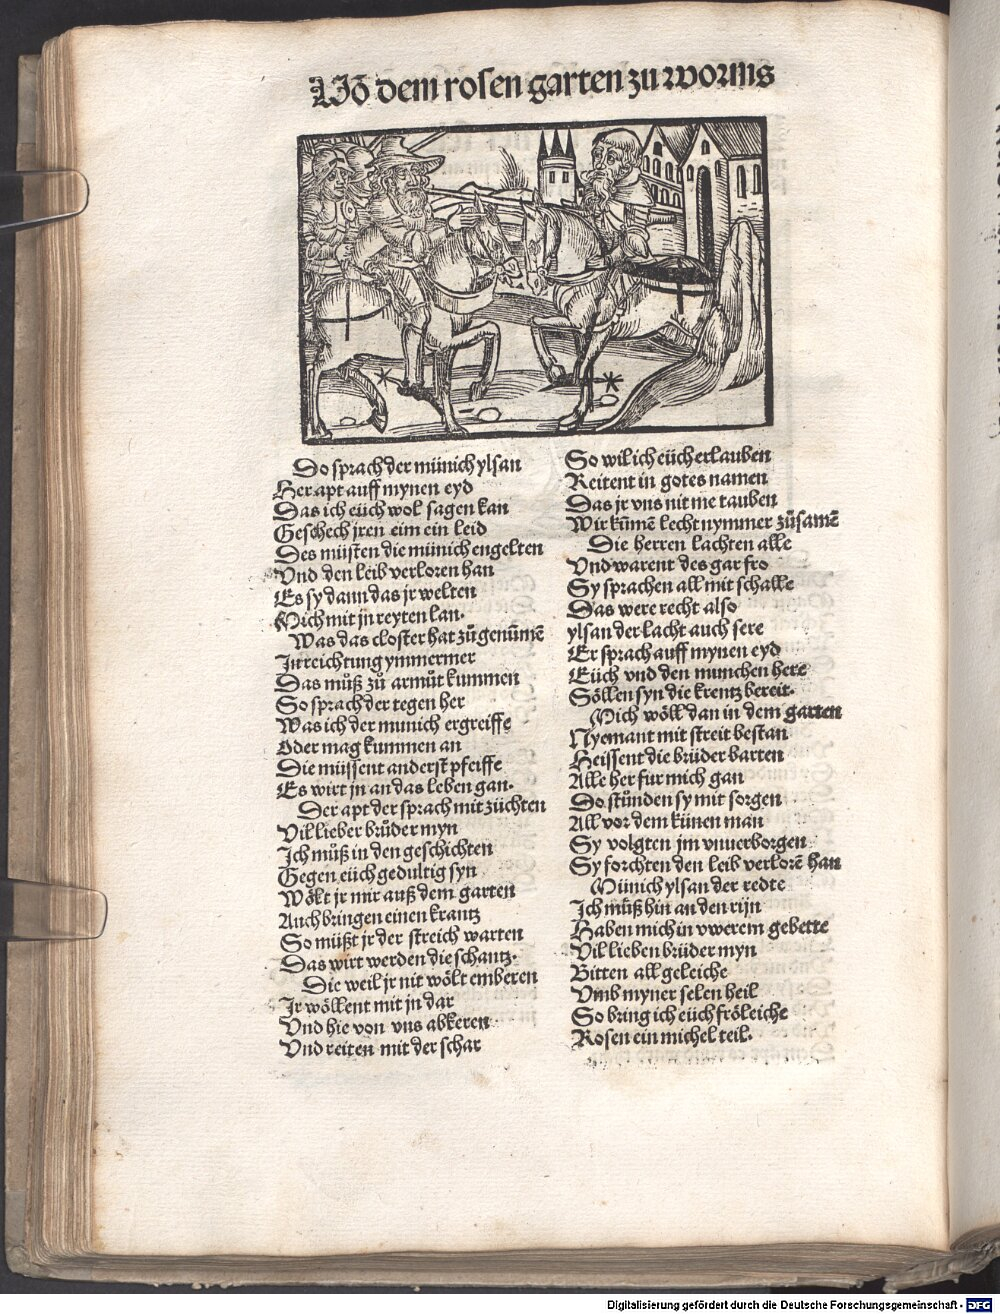 Vō dem rosen garten zu worms
Do sprach der münich ylsan
Her apt auff mynen eyd
Das ich eüch wol sagen kan
Geschech jren eim ein leid
Des müsten die münich engelten
Vnd den leib verloren han
Es sy dann das jr welten
Mich mit jn reyten lan.
Was das closter hat zůgenūmē
In reichtung ymmermer
Das můß zů armůt kummen
So sprach der tegen her
Was ich der munich ergreiffe
Oder mag kummen an
Die müssent anderst pfeiffe
Es wirt jn an das leben gan.
Der apt der sprach mit züchten
Vil lieber brůder myn
Ich můß in den geschichten
Gegen eüch gedultig syn
Wölt jr mir auß dem garten
Auch bringen einen krantz
So müßt jr der streich warten
Das wirt werden die schantz.
Die weil jr nit wölt emberen
Ir wöllent mit jn dar
Vnd hie von vns abkeren
Vnd reiten mit der schar
So wil ich eüch erlauben
Reitent in gotes namen
Das jr vns nit me tauben
Wir kūmē lecht nymmer zůsamē
Die herren lachten alle
Vnd warent des gar fro
Sy sprachen all mit schalle
Das were recht also
ylsan der lacht auch sere
Er sprach auff mynen eyd
Eüch vnd den munchen here
Söllen syn die krentz bereit.
Mich wöll dan in dem garten
Nyemant mit streit bestan
Heissent die brüder barten
Alle her fur mich gan
Do stůnden sy mit sorgen
All vor dem künen man
Sy volgten jm vnuerborgen
Sy forchten den leib verlorē han
Münich ylsan der redte
Ich můß hin an den rijn
Haben mich in vwerem gebette
Vil lieben brüder myn
Bitten all geleiche
Vmb myner selen heil
So bring ich eüch fröleiche
Rosen ein michel teil.
Digitalisierung gefördert durch die Deutsche Forschungsgemeinschaft - DFG